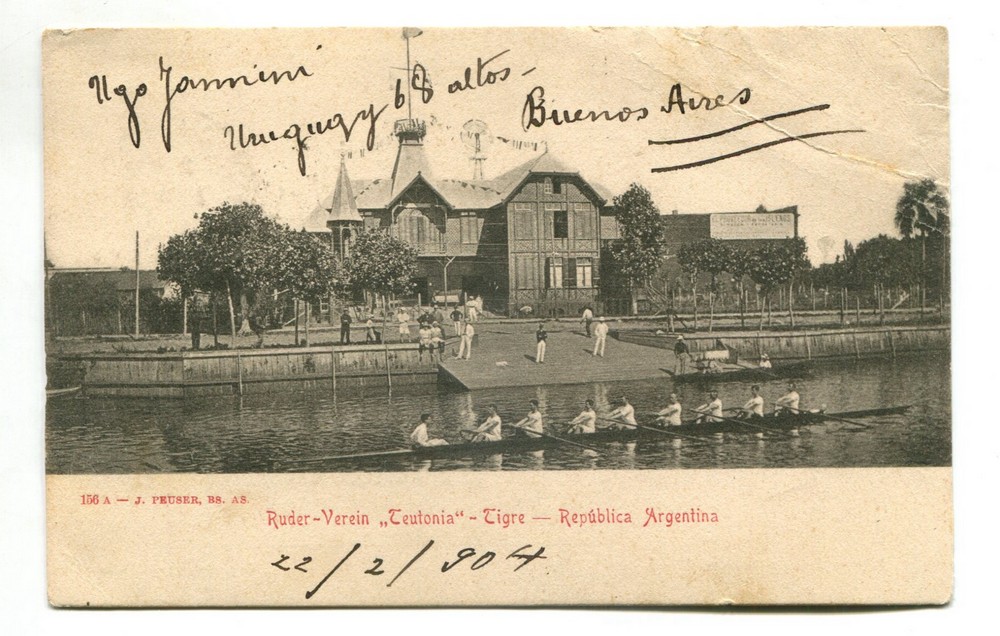 Ugo Jannini
Uruguay 68 altos-
Buenos Aires
156 A — J. PEUSER, BS. AS.
Ruder-Verein „Teutonia“ - Tigre — República Argentina
22/2/904